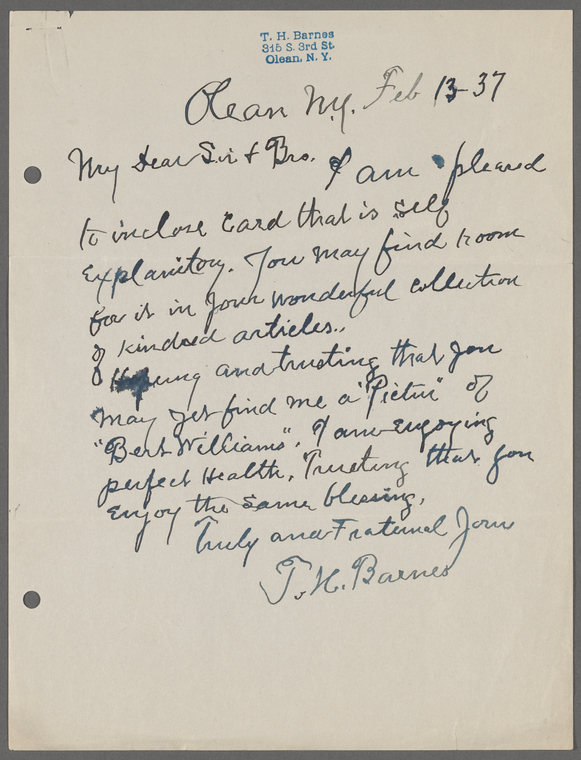 T. H. Barnes
315 S. 3rd St.
Olean, N. Y.
Olean N.Y. Feb 13-37
My Dear Sir & Bro. I am pleased
to inclose Card that is Self
Explanitory. You may find room
for it in your wonderful collection
of kindred articles.
Hoping and trusting that you
may yet find me a "Pictur" of
"Bert Williams". I am enjoying
perfect Health, Trusting that you
Enjoy the same blessing,
Truly and Fraternal Your
T. H. Barnes